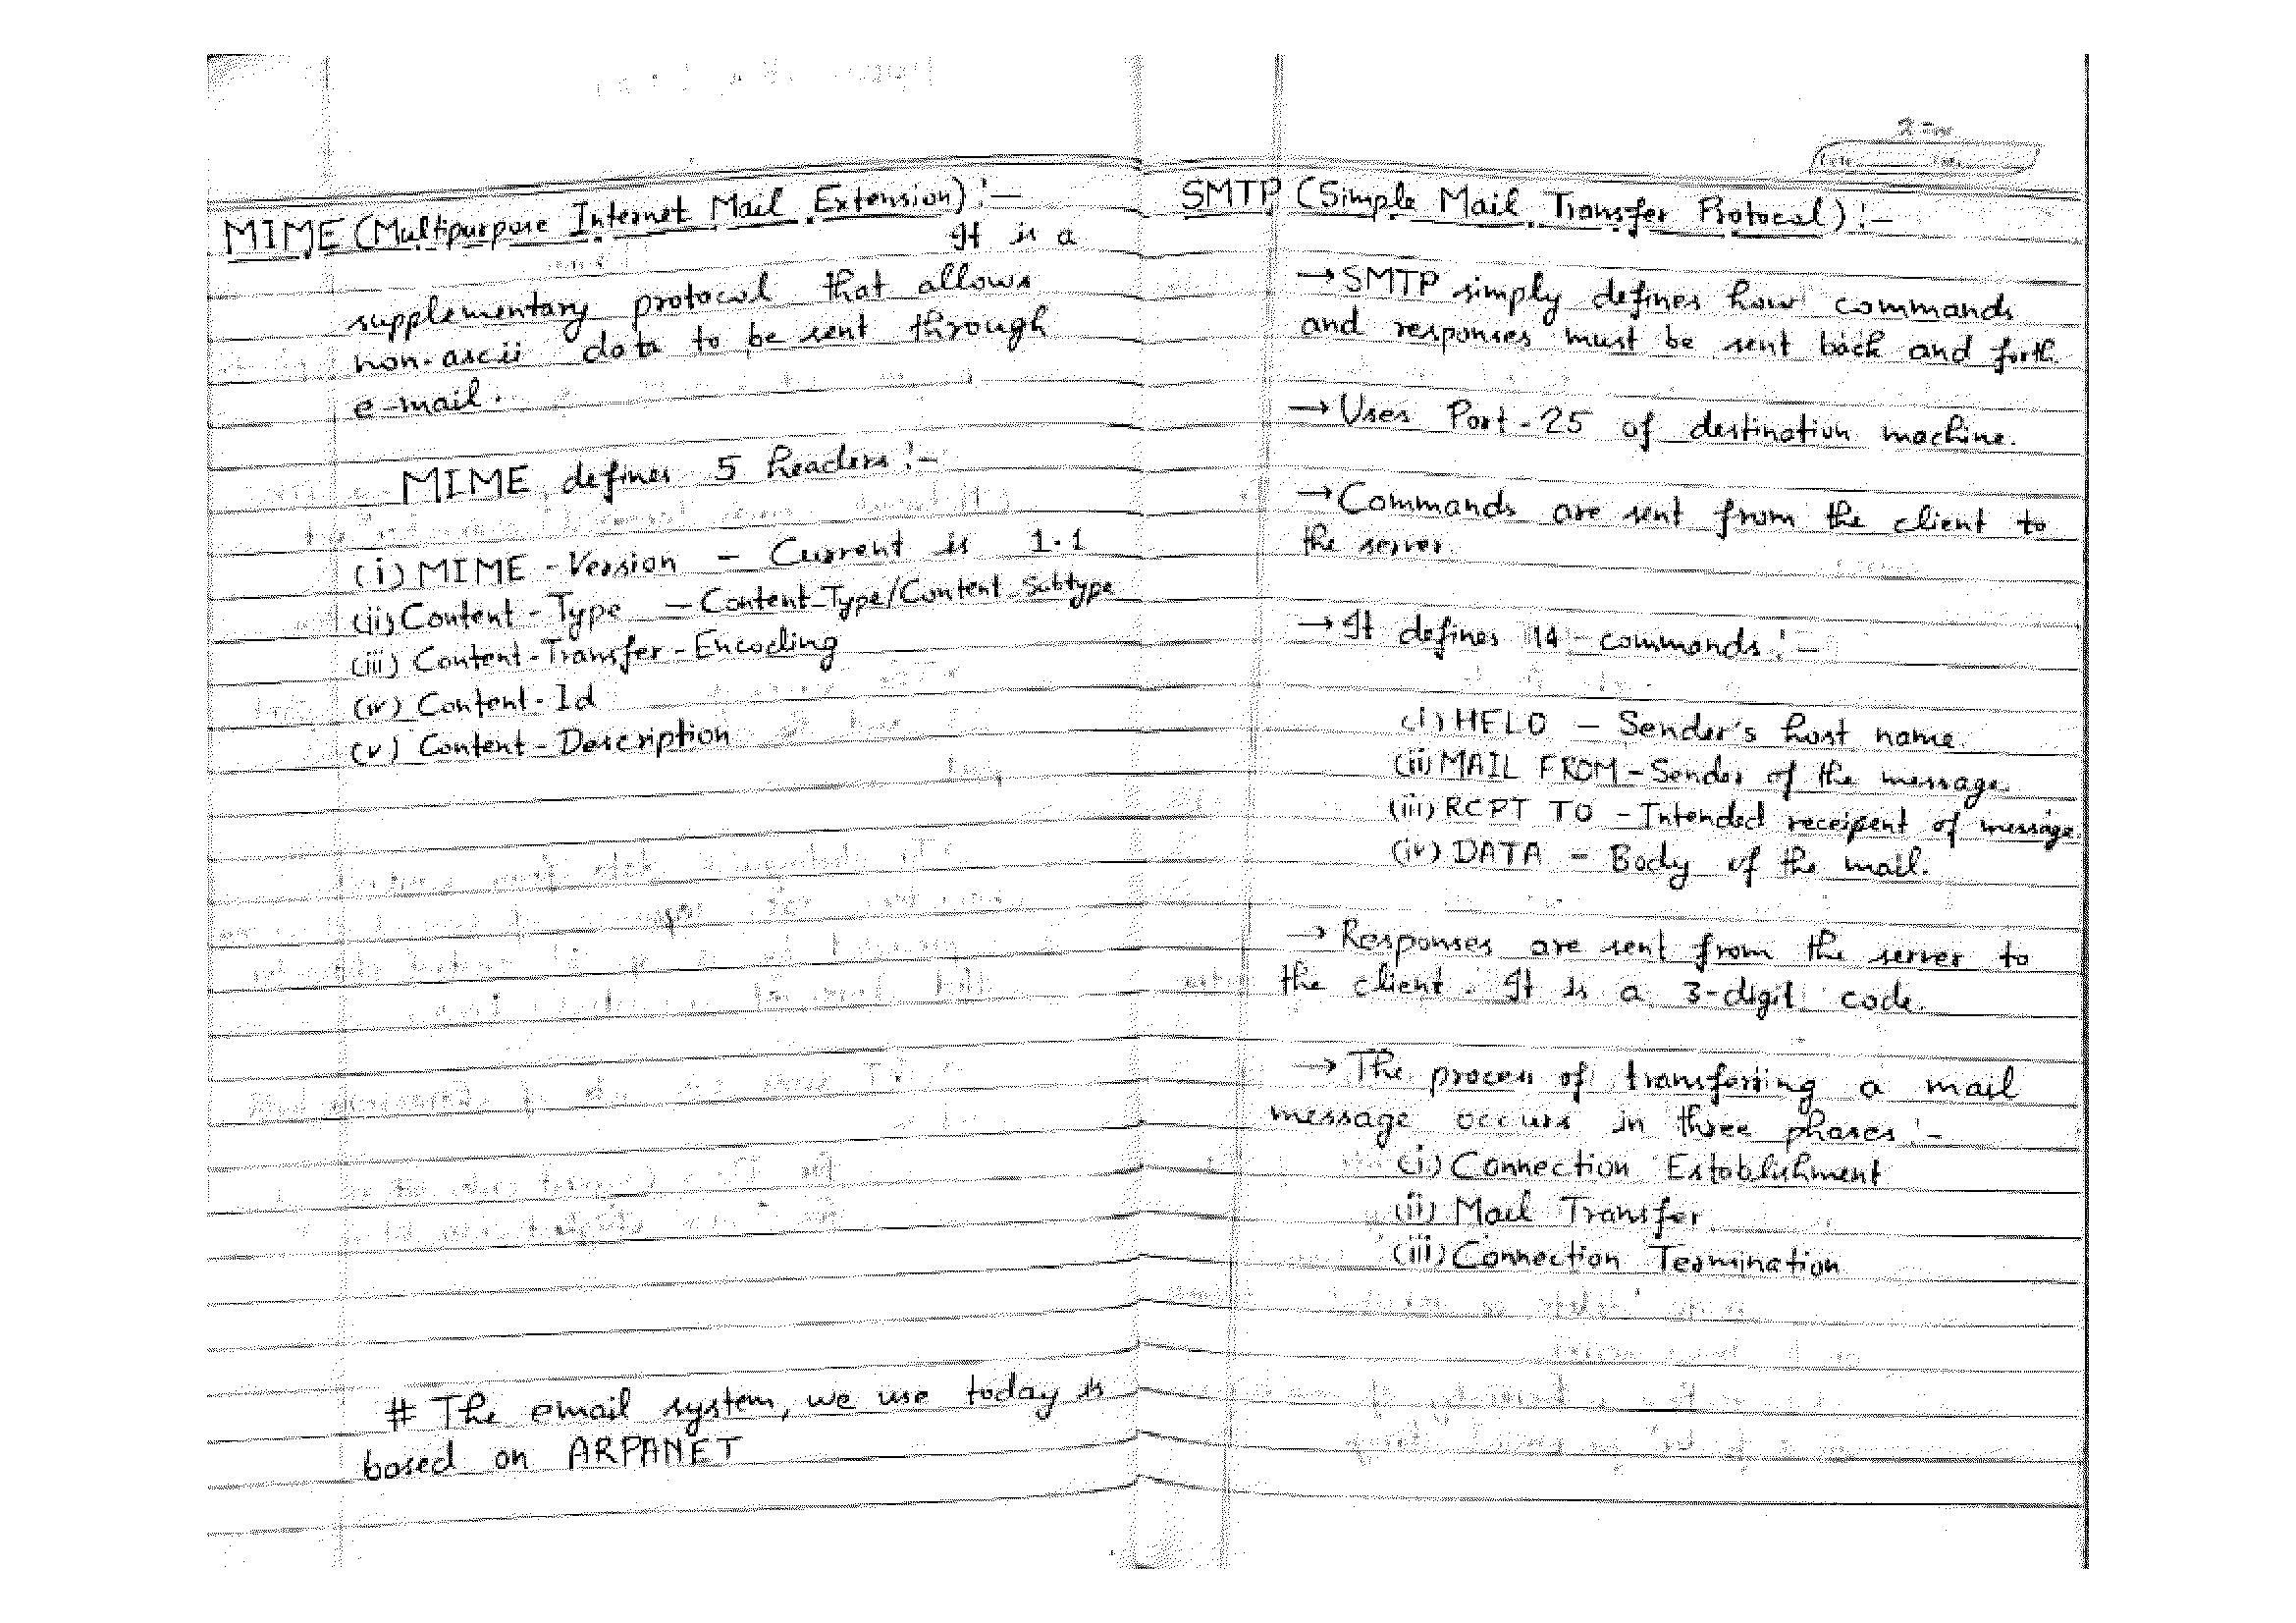 MIME (Multipurpose Internet Mail Extension) :-
It is a
supplementary protocol that allows
non-ascii data to be sent through
e-mail.
MIME defines 5 headers :-
(i) MIME - Version - Current is 1.1
(ii) Content - Type - Content Type/Content Subtype
(iii) Content - Transfer - Encoding
(iv) Content - Id
(v) Content - Description
# The email system, we use today is
based on ARPANET
SMTP (Simple Mail Transfer Protocol) :-
→ SMTP simply defines how commands
and responses must be sent back and forth.
→ Uses Port - 25 of destination machine.
→ Commands are sent from the client to
the server.
→ It defines 14 commands :-
(i) HELO - Sender's host name.
(ii) MAIL FROM - Sender of the message.
(iii) RCPT TO - Intended receipent of message
(iv) DATA - Body of the mail.
→ Responses are sent from the server to
the client. It is a 3-digit code.
→ The process of transferring a mail
message occurs in three phases :-
(i) Connection Establishment
(ii) Mail Transfer
(iii) Connection Termination